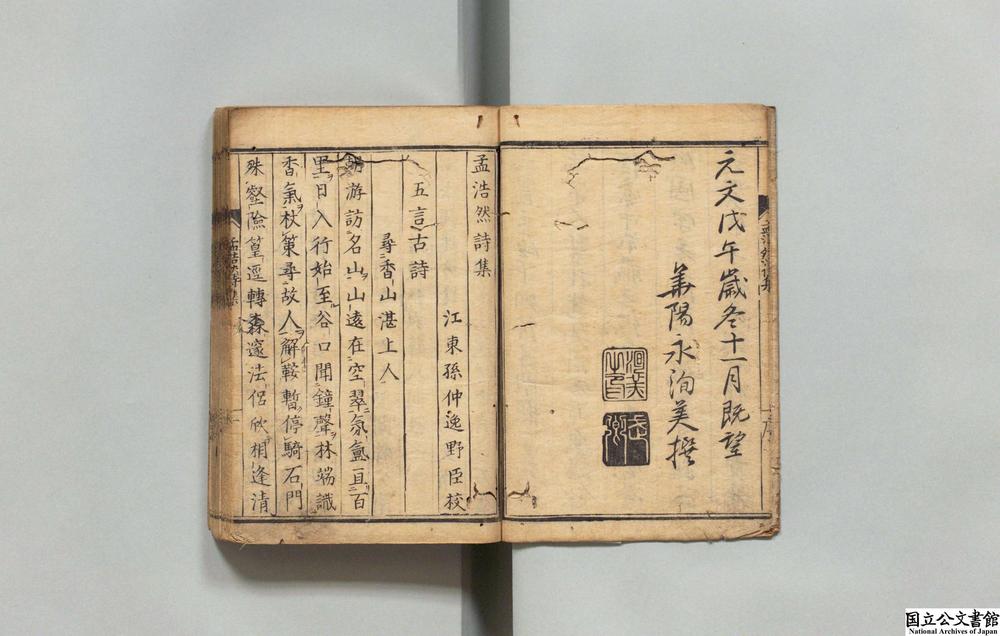 元文戊午歳冬十一月既望
華陽永洵美撰
孟浩然詩集
江東孫仲逸野臣校
五言古詩
尋香山湛上人
朝游訪名山山遠在空翠氛氳亘百
里日入行始至谷口聞鐘聲林端識
香氣杖策尋故人解鞍暫停騎石門
殊壑險篁逕轉森邃法侶欣相逢清
国立公文書館
National Archives of Japan